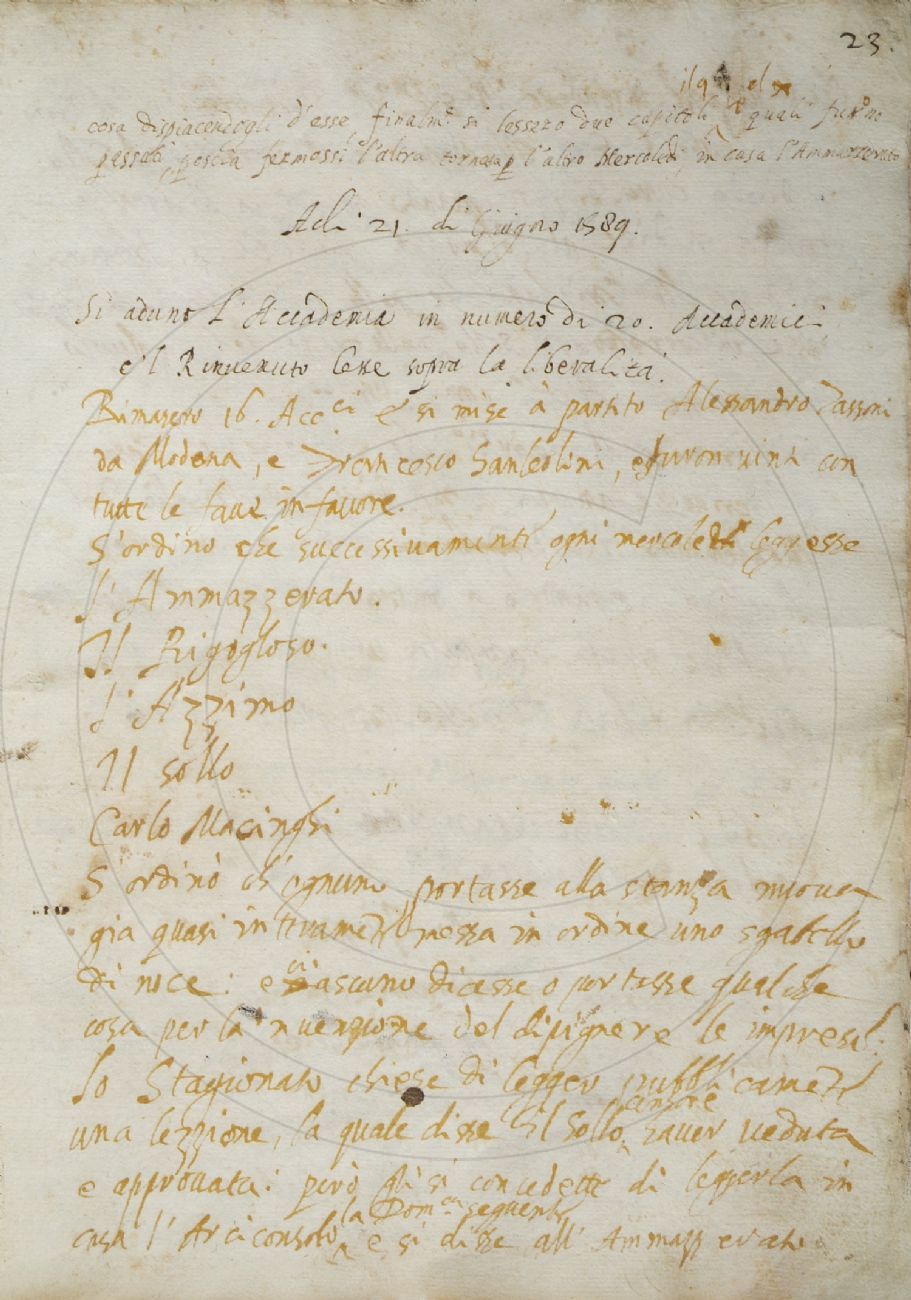 23.
cosa dispiacendogli d'esse, finalm.e si lessero due capitoli quali furono
passati, poscia fermossi l'altra tornata p l'altro Mercoledì in casa l'Ammazzerato
Adi 21. di Giugno 1589.
Si aduno L'Accademia in numero di 20. Accademici
e'l Rinvenuto lesse sopra la liberalità.
Rimasero 16. Acc.ci e si mise à partito Alessandro Tassoni
da Modena, e Francesco Sanleolini, e furon vinti con
tutte le fave in favore.
S'ordino che successivamente ogni mercoledì leggesse
L'Ammazzerato.
Il Rigogloso.
L'Azzimo
Il sollo
Carlo Macinghi
S'ordinò ch'ognuno portasse alla stanza nuova
gia quasi interamente messa in ordine uno sgabello
di noce: e ciascuno dicesse o portasse qualche
cosa per la'nvenzione del dipignere le imprese.
Lo Stagionato chiese di legger pubblicamente
una lezzione, la quale disse il Sollo haver veduta
e approvata: però gli si concedette di leggerla in
casa l'Arciconsolo la Dom.ca seguente e si disse all'Ammazzerato